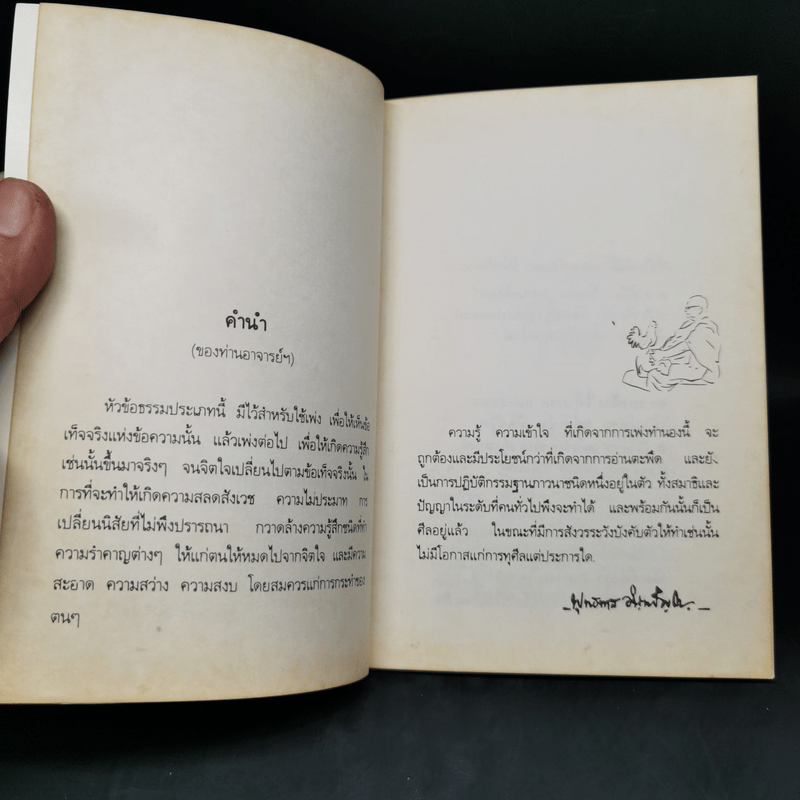 คำนำ
(ของท่านอาจารย์ฯ)
หัวข้อธรรมประเภทนี้ มีไว้สำหรับใช้เพ่ง เพื่อให้เห็นข้อ
เท็จจริงแห่งข้อความนั้น แล้วเพ่งต่อไป เพื่อให้เกิดความรู้สึก
เช่นนั้นขึ้นมาจริงๆ จนจิตใจเปลี่ยนไปตามข้อเท็จจริงนั้น ใน
การที่จะทำให้เกิดความสลดสังเวช ความไม่ประมาท การ
เปลี่ยนนิสัยที่ไม่พึงปรารถนา กวาดล้างความรู้สึกชนิดที่ทำ
ความรำคาญต่างๆ ให้แก่ตนให้หมดไปจากจิตใจ และมีความ
สะอาด ความสว่าง ความสงบ โดยสมควรแก่การกระทำของ
ตนๆ
ความรู้ ความเข้าใจ ที่เกิดจากการเพ่งทำนองนี้ จะ
ถูกต้องและมีประโยชน์กว่าที่เกิดจากการอ่านตะพึด และยัง
เป็นการปฏิบัติกรรมฐานภาวนาชนิดหนึ่งอยู่ในตัว ทั้งสมาธิและ
ปัญญาในระดับที่คนทั่วไปพึงจะทำได้ และพร้อมกันนั้นก็เป็น
ศีลอยู่แล้ว ในขณะที่มีการสังวรระวังบังคับตัวให้ทำเช่นนั้น
ไม่มีโอกาสแก่การทุศีลแต่ประการใด.
พุทธทาส อินฺทปญฺโญ.